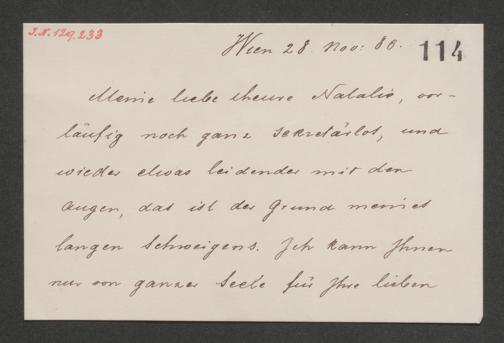 I.N. 129.233
Wien 28. Nov: 80.
114
Meine liebe theure Natalie, vor-
läufig noch ganz sekretärlos, und
wieder etwas leidender mit den
Augen, das ist der Grund meines
langen Schweigens. Ich kann Ihnen
nur von ganzer Seele für Ihre lieben